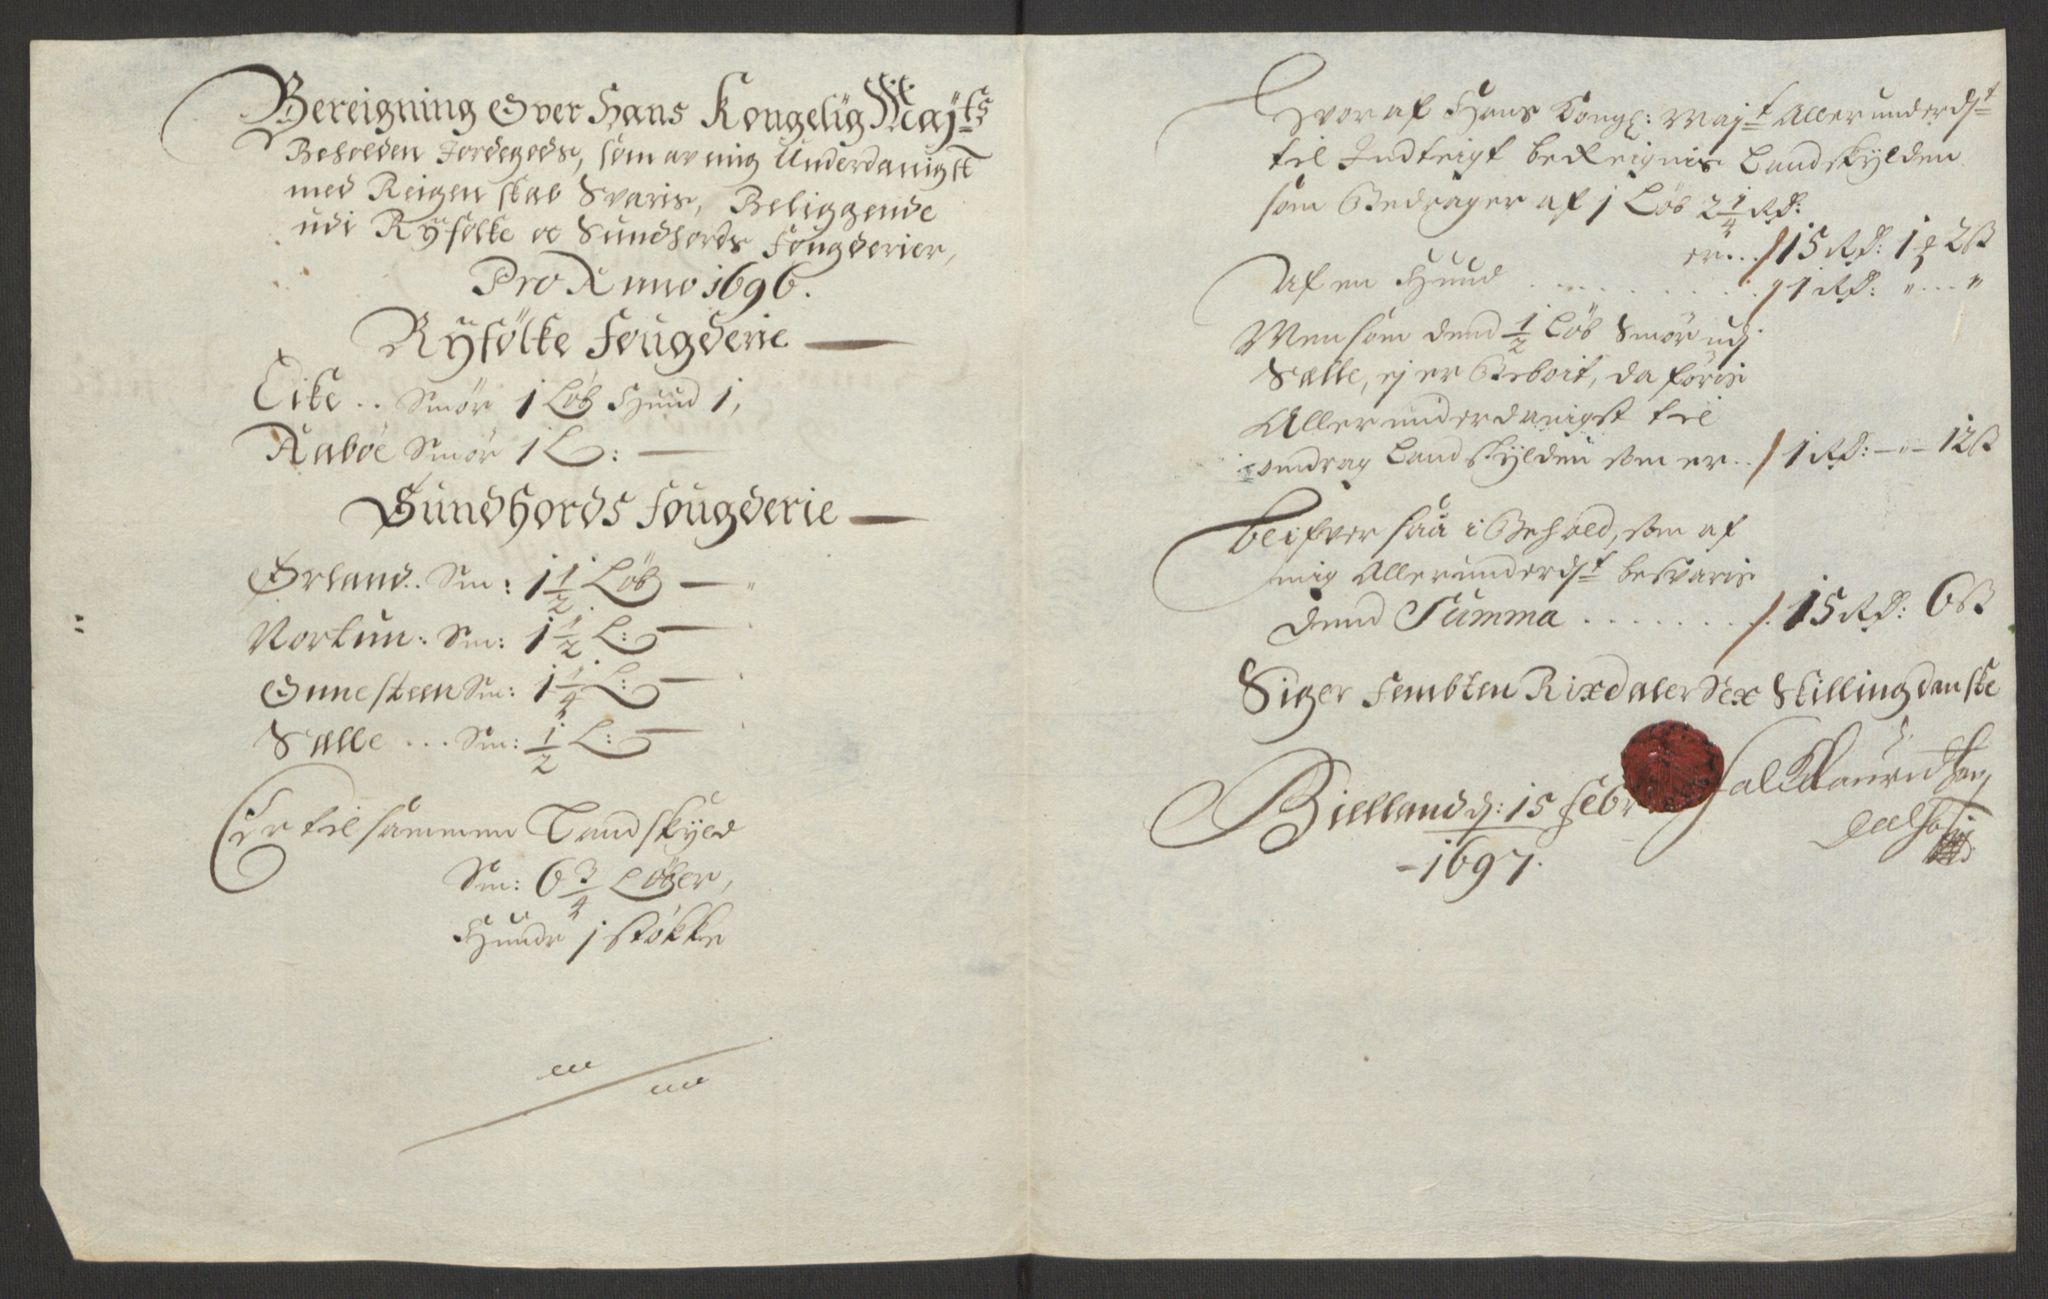 Bereigning Over Hans Kongelig Maÿts
Beholden Jordegods, som av mig Underdanigst
med Reigenskab Svaris, Beliggende
udi Ryfolke oc Sundhords Fougderier,
Pro Anno 1696.
Ryfölke Fougderie
Eike .. Smör 1 Löb Hund 1,
Aaboe Smör 1 L:
Sundhords Fougderie
Ørland .. Sm: 1 1/2 Löb
Nortun: Sm: 1 1/2 L:
Onnesteen Sm: 1 1/4 L:
Sælle ... Sm: 1/2 L:
Er tilsammen Landskyld
Sm: 6 3/4 Löber,
Hunde 1 støkke
Hvoraf Hans Kongl: Majt Allerunderdst
til Indteigt beReignis Landskylden
som Bedrager af 1 Löb 2 1/4 Rd:
er ... 15 Rd: 1 2ß
Af en Hund . . . . . 1 Rd: " ... "
Men som dend 1/2 Löb Smör udj
Sælle, ej er Beboit, da føris
Allerunderdanigst til
omdrag Landskylden som er .. 1 Rd: - " - 12ß
blifver saa i Behold, som af
mig Allerunderdst besvaris
dend Summa . . . . . . . 15 Rd: 6ß
Siger Fembten Rixdaler Sex Skilling danske
Biellland d: 15 Febr
1697.
Falk Lauridsen